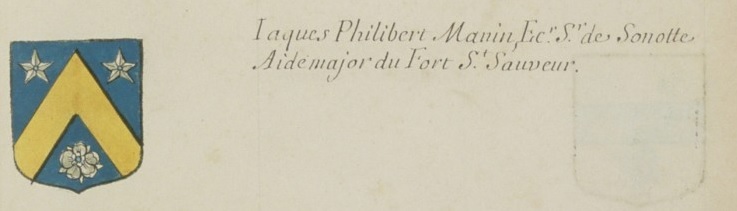 Iaques Philibert Manin, Ec.r S.r de Sonotte
Aidemajor du Fort S.t Sauveur.